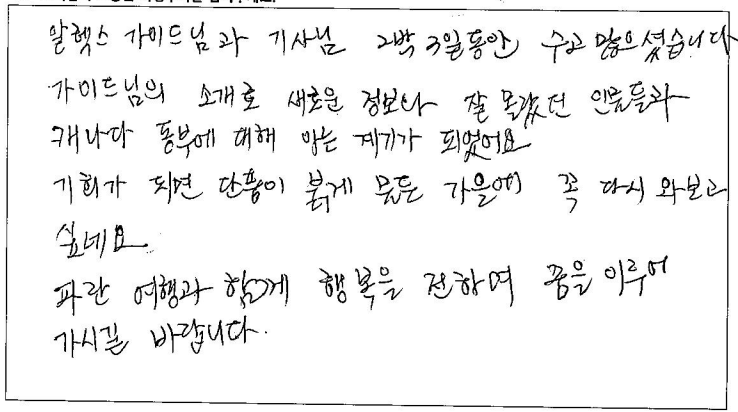 알렉스 가이드님과 기사님 2박3일동안 수고 많으셨습니다
가이드님의 소개로 새로운 정보나 잘 몰랐던 인물들과
캐나다 동부에 대해 아는 계기가 되었어요
기회가 되면 단풍이 붉게 물든 가을에 꼭 다시 와보고
싶네요
파란 여행과 함께 행복을 전하며 꿈을 이루어
가시길 바랍니다.